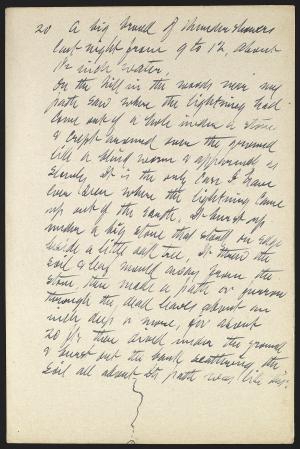 20 A big brood of thunder showers
last night from 9 to 12, about
1½ inch water,
On the hill in the woods near my
path saw where the lightning had
come out of a hole under a stone
& crept around over the ground
like a blind worm & apparently as
slowly. It is the only case I have
ever seen where the lightning came
up out of the earth, It burst up
under a big stone that stood on edge
beside a little oak tree, It threw the
soil & leaf mould away from the
stone, then made a path or furrow
through the dead leaves about an
inch deep or more, for about
20 ft, then dived under the ground
& burst out the bank scattering the
soil all about Its path was like this: